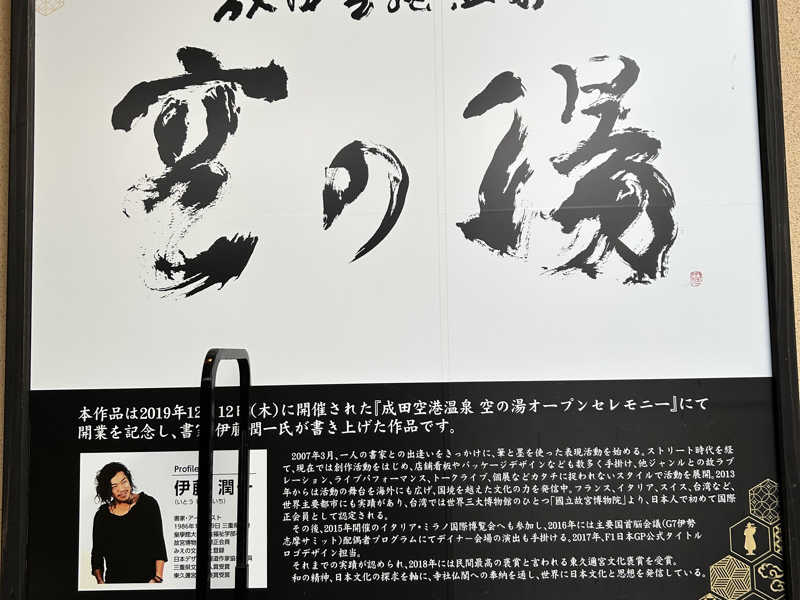 成田空港温泉
空の湯
本作品は2019年12月12日(木)に開催された『成田空港温泉 空の湯オープンセレモニー』にて
開業を記念し、書家 伊藤潤一氏が書き上げた作品です。
Profile
伊藤 潤一
書家・アーティスト
2007年3月、一人の書家との出逢いをきっかけに、筆と墨を使った表現活動を始める。ストリート時代を経
て、現在では創作活動をはじめ、店舗看板やパッケージデザインなども数多く手掛け、他ジャンルとのコラブ
レーション、ライブパフォーマンス、トークライブ、個展などカタチに捉われないスタイルで活動を展開。2013
年からは活動の舞台を海外にも広げ、国境を越えた文化の力を発信中。フランス、イタリア、スイス、台湾など、
世界主要都市にも実績があり、台湾では世界三大博物館のひとつ「國立故宮博物院」より、日本人で初めて国際
正会員として認定される。
その後、2015年開催のイタリア・ミラノ国際博覧会へも参加し、2016年には主要国首脳会議(G7伊勢
志摩サミット)配偶者プログラムにてディナー会場の演出も手掛ける。2017年、F1日本GP公式タイトル
ロゴデザイン担当。
それまでの実績が認められ、2018年には民間最高の褒賞と言われる東久邇宮文化褒賞を受賞。
和の精神、日本文化の探求を軸に、寺社仏閣への奉納を通し、世界に日本文化と思想を発信している。